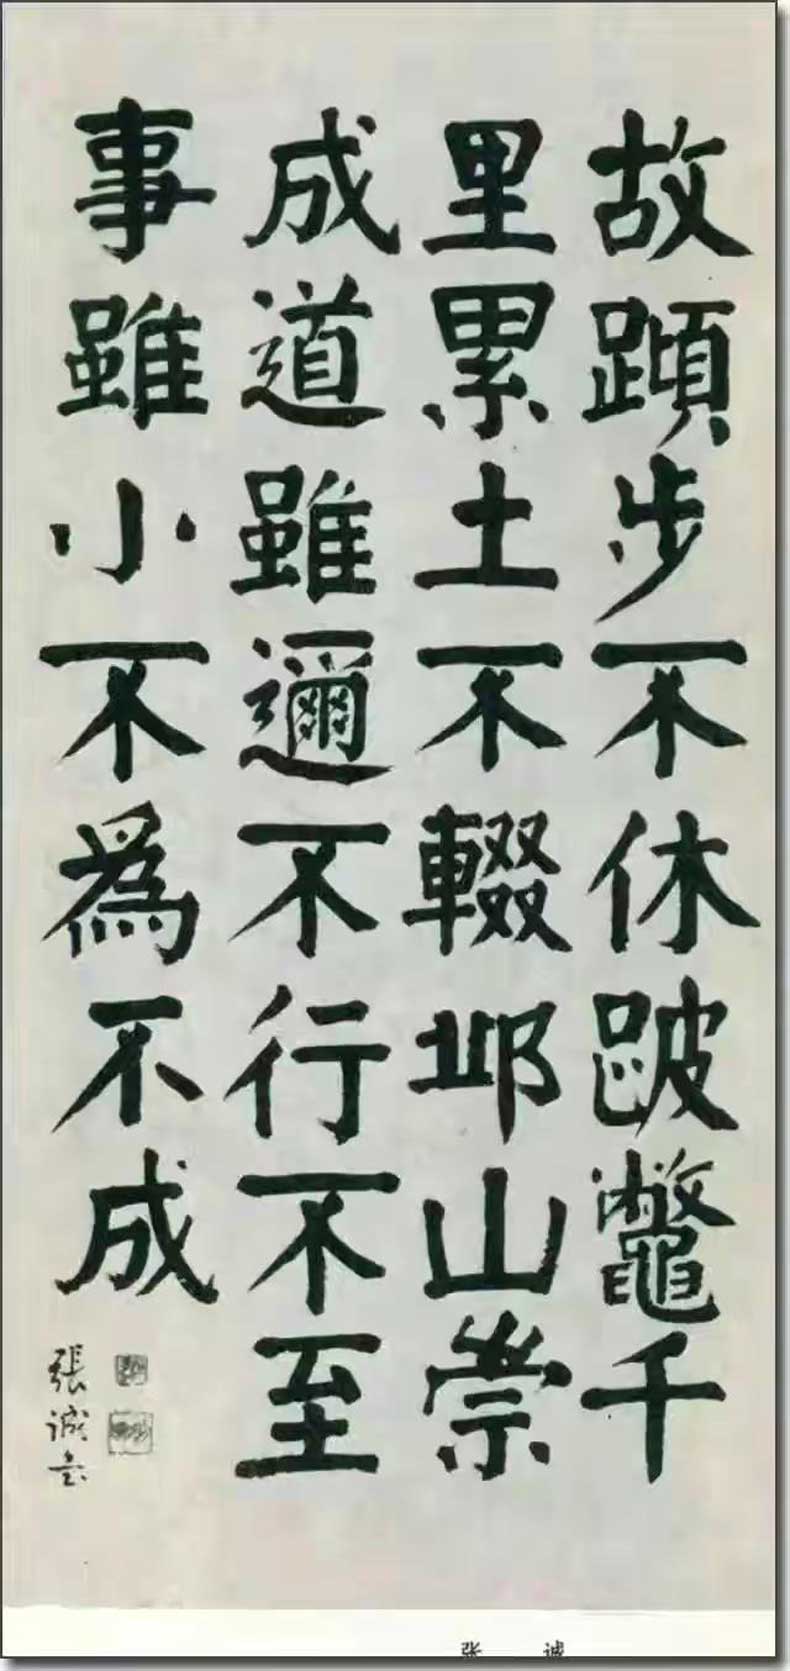 故蹞步不休跛鼈千
里累土不輟邱山崇
成道雖邇不行不至
事雖小不爲不成
張誠
张 诚